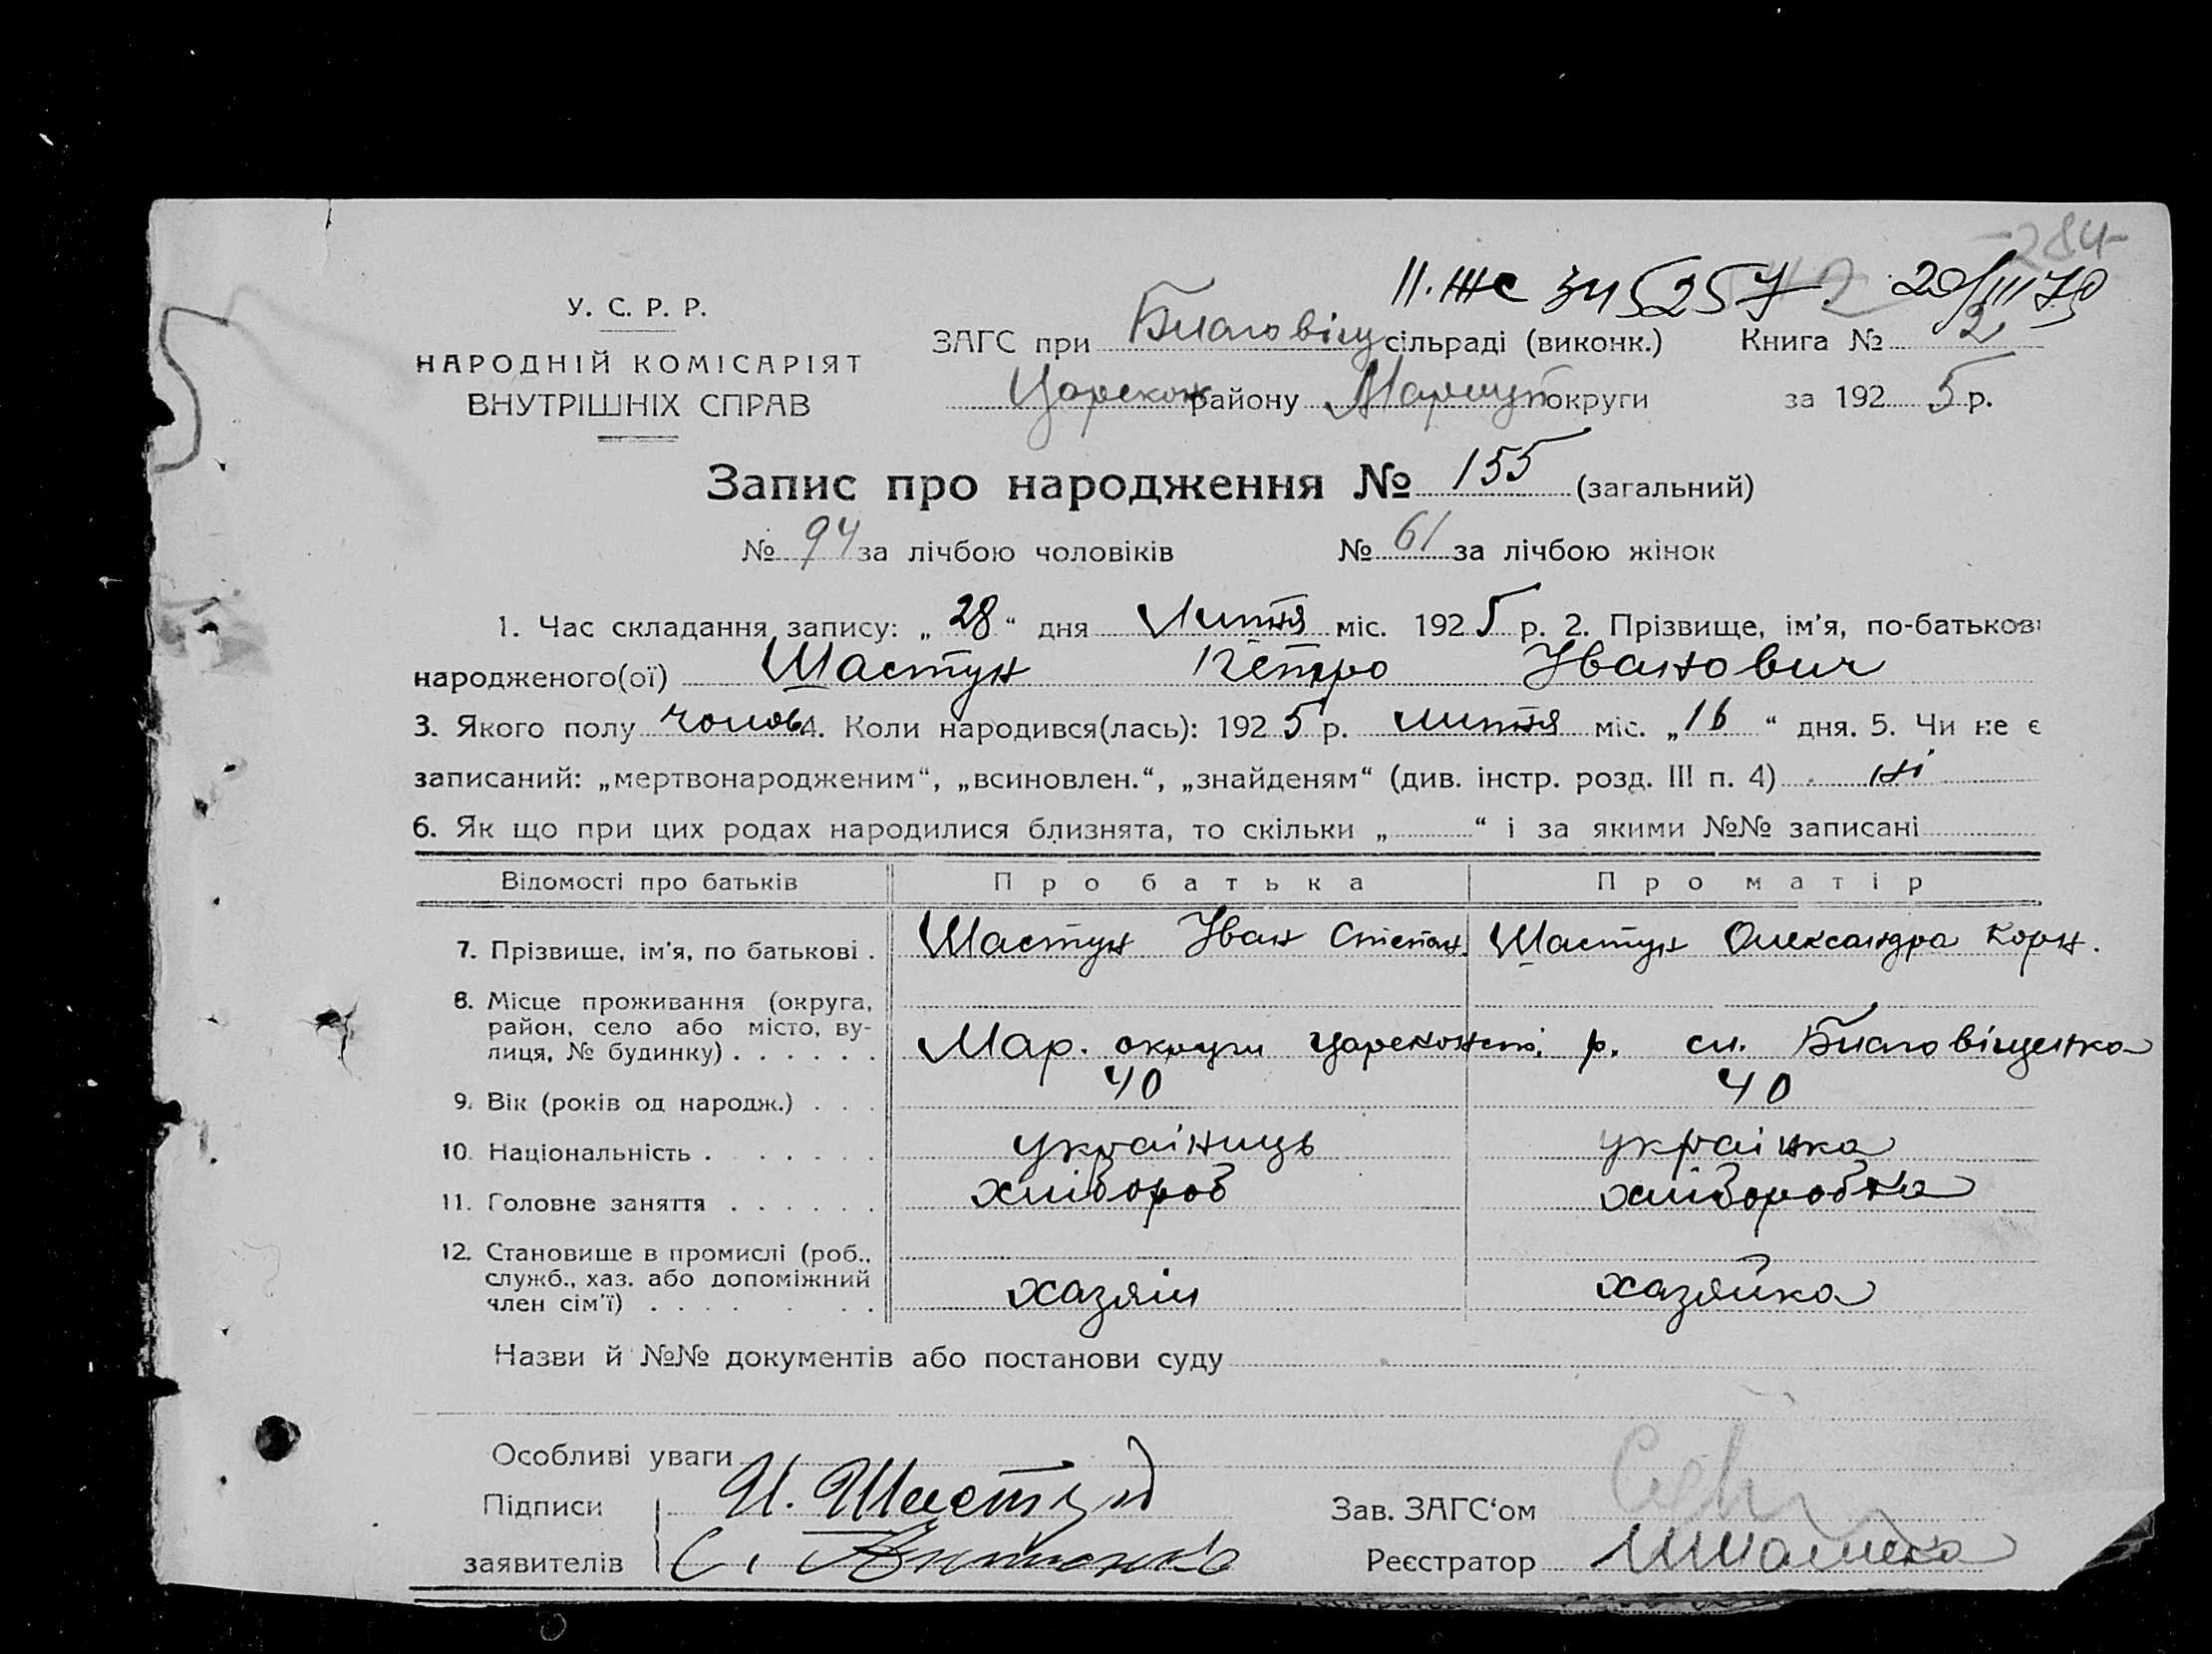 -284-
ІІ. ЖС 345257 20/III 79
У. С. Р. Р.
НАРОДНІЙ КОМІСАРІЯТ
ВНУТРІШНІХ СПРАВ
ЗАГС при Благовіщ сільраді (виконк.) Книга № 2
Царекон району Маріуп округи за 1925 р.
Запис про народження № 155 (загальний)
№ 94 за лічбою чоловіків № 61 за лічбою жінок
1. Час складання запису: „28“ дня липня міс. 1925 р. 2. Прізвище, ім'я, по-батькові
народженого(ої) Шастун Петро Іванович
3. Якого полу чолов 4. Коли народився(лась): 1925 р. липня міс. „16“ дня. 5. Чи не є
записаний: „мертвонародженим“, „всиновлен.“, „знайденям“ (див. інстр. розд. III п. 4) ні
6. Як що при цих родах народилися близнята, то скільки „ “ і за якими №№ записані
Відомості про батьків Про батька Про матір
7. Прізвище, ім'я, по батькові . Шастун Іван Степан. Шастун Олександра Корн.
8. Місце проживання (округа,
район, село або місто, ву-
лиця, № будинку) . . . . . . Мар. округи Царекост. р. сл. Благовіщенка
9. Вік (років од народж.) . . . 40 40
10. Національність . . . . . . україниць українка
11. Головне заняття . . . . . . хлібороб хліборобка
12. Становище в промислі (роб.,
служб., хаз. або допоміжний
член сім'ї) . . . . . . хазяін хазяйка
Назви й №№ документів або постанови суду
Особливі уваги
Підписи И. Шастун Зав. ЗАГС'ом
заявителів С. Реєстратор